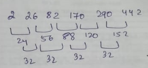 2 26 82 170 290 442
24 56 88 120 152
32 32 32 32